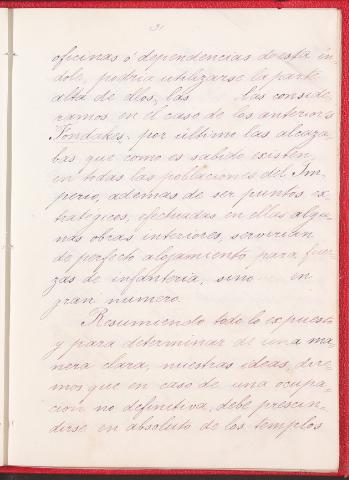 31
oficinas ó dependencias de esta ín-
dole, podria utilizarse la parte
alta de ellos, las las conside-
ramos en el caso de los anteriores
Fondakes: por último las alcaza-
bas que como es sabido existen,
en todas las poblaciones del Im-
perio, además de ser puntos es-
trategicos, efectuadas en ellas algu-
nas obras interiores, servirian
de perfecto alojamiento para fuer-
zas de infanteria, sino en
gran numero.
Resumiendo todo lo expuesto
y para determinar de una ma-
nera clara, nuestras ideas, dire-
mos que en caso de una ocupa-
cion no definitiva, debe prescin-
dirse en absoluto de los templos